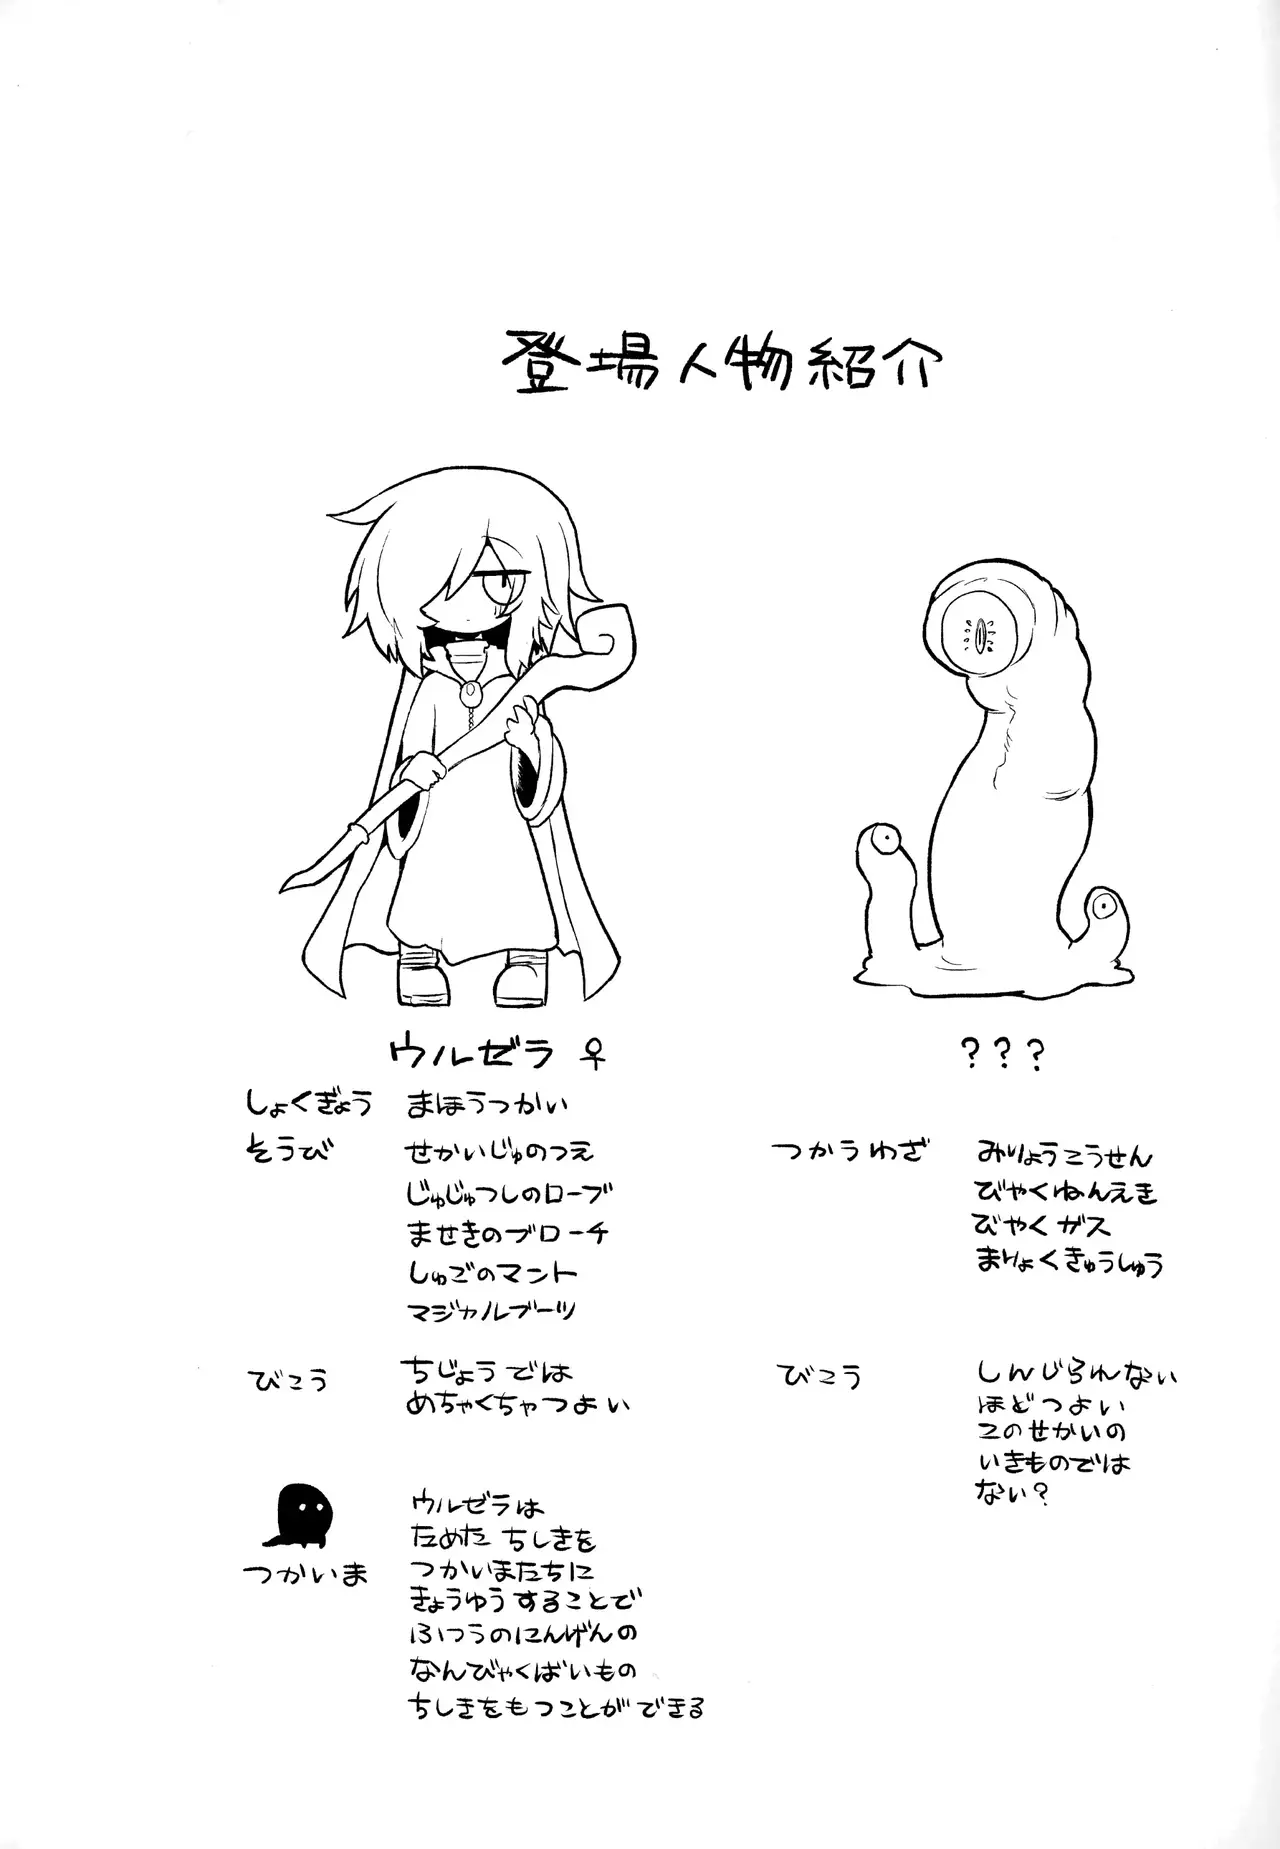 登場人物紹介
ウルゼラ ♀
しょくぎょう まほうつかい
そうび せかいじゅのつえ
じゅじゅつしのローブ
ませきのブローチ
しゅごのマント
マジカルブーツ
びこう ちじょうでは
めちゃくちゃつよい
つかいま
ウルゼラは
ためた ちしきを
つかいまたちに
きょうゆうすることで
ふつうのにんげんの
なんびゃくばいもの
ちしきをもつことができる
???
つかうわざ みりょうこうせん
びゃくねんえき
びやくガス
まりょくきゅうしゅう
びこう しんじられない
ほどつよい
このせかいの
いきものでは
ない?